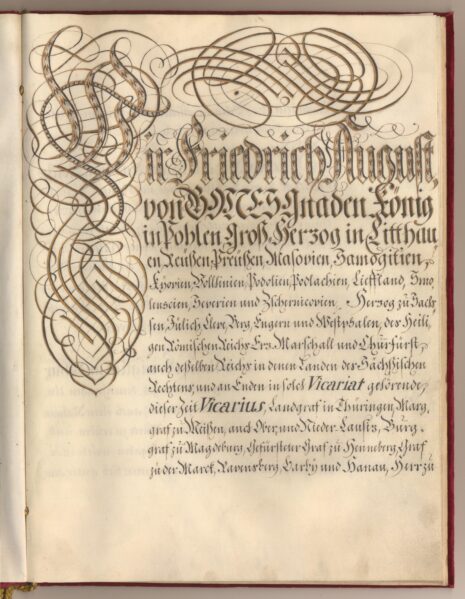 Wir Friedrich August,
von GOTTES Gnaden König
in Pohlen, Groß Herzog in Litthau
en, Reußen, Preußen, Masovien, Samogitien,
Kyovien, Vollhinien, Podolien, Podlachien, Lieffland, Smo
lenscien, Severien und Zschernicovien, Herzog zu Sach
sen, Jülich, Cleve, Berg, Engern und Westphalen, des Heili
gen Römischen Reichs Erz-Marschall und Churfürst,
auch desselben Reichs in denen Landen des Sächsischen
Rechtens, und an Enden in solch Vicariat gehörende,
dieser Zeit Vicarius, Landgraf in Thüringen, Marg
graf zu Meißen, auch Ober und Nieder-Lausiz, Burg
graf zu Magdeburg, Gefürsteter Graf zu Henneberg, Graf
zu der Marck, Ravensberg, Barby und Hanau, Herr zu